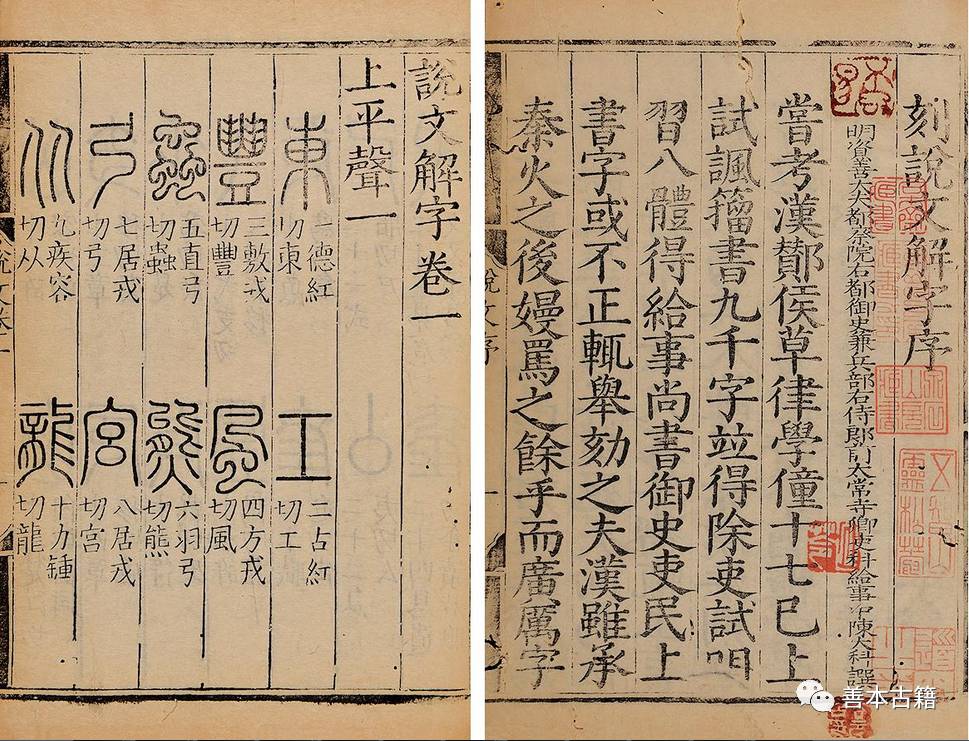 刻說文解字序
明資善大夫都察院右都御史兼兵部右侍郎前太常寺卿吏科給事中陳大科譔
嘗考漢酇侯草律學僮十七已上
試諷籀書九千字竝得除吏試
習八體得給事尚書御史吏民上
書字或不正輒舉劾之夫漢雖承
秦火之後嫚罵之餘乎而廣厲字
說文序
說文解字卷一
上平聲一
東 一德紅切東 工 二古紅切工
豐 三敷戎切豐 風 四方戎切風
蟲 五直弓切蟲 熊 六羽弓切熊
弓 七居戎切弓 宮 八居戎切宮
从 九疾容切从 龍 十力鍾切龍
善本古籍